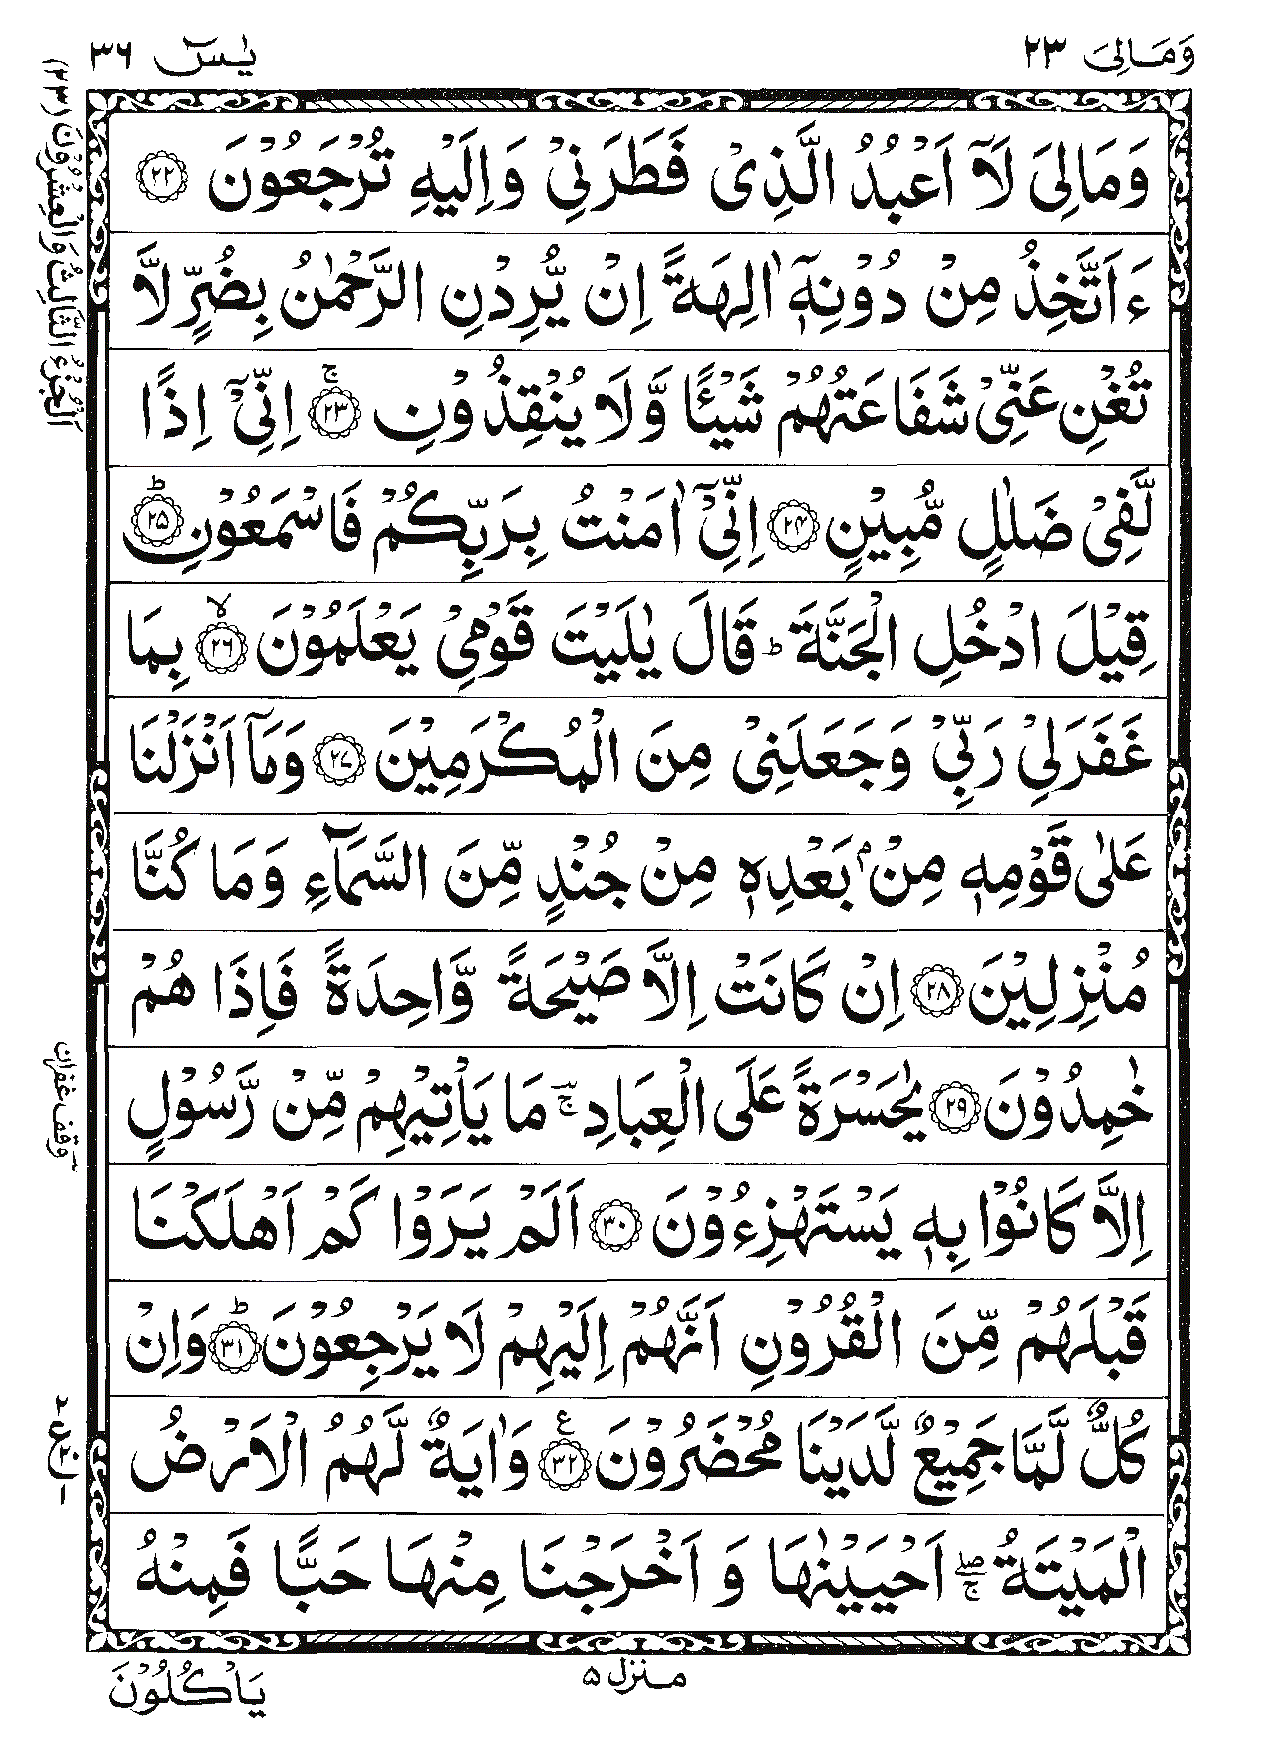 وَمَالِیَ ۲۳
یٰسٓ ۳۶
وَمَالِیَ لَاۤ اَعْبُدُ الَّذِیْ فَطَرَنِیْ وَاِلَیْهِ تُرْجَعُوْنَ ﴿۲۲﴾
ءَاَتَّخِذُ مِنْ دُوْنِهٖۤ اٰلِهَةً اِنْ یُّرِدْنِ الرَّحْمٰنُ بِضُرٍّ لَّا
تُغْنِ عَنِّیْ شَفَاعَتُهُمْ شَیْـًٔا وَّلَا یُنْقِذُوْنِ ﴿۲۳﴾ۚ اِنِّیْۤ اِذًا
لَّفِیْ ضَلٰلٍ مُّبِیْنٍ ﴿۲۴﴾ اِنِّیْۤ اٰمَنْتُ بِرَبِّكُمْ فَاسْمَعُوْنِ ﴿۲۵﴾ؕ
قِیْلَ ادْخُلِ الْجَنَّةَ ؕ قَالَ یٰلَیْتَ قَوْمِیْ یَعْلَمُوْنَ ﴿۲۶﴾ۙ بِمَا
غَفَرَلِیْ رَبِّیْ وَجَعَلَنِیْ مِنَ الْمُكْرَمِیْنَ ﴿۲۷﴾ وَمَاۤ اَنْزَلْنَا
عَلٰی قَوْمِهٖ مِنْۢ بَعْدِهٖ مِنْ جُنْدٍ مِّنَ السَّمَآءِ وَمَا كُنَّا
مُنْزِلِیْنَ ﴿۲۸﴾ اِنْ كَانَتْ اِلَّا صَیْحَةً وَّاحِدَةً فَاِذَا هُمْ
خٰمِدُوْنَ ﴿۲۹﴾ یٰحَسْرَةً عَلَی الْعِبَادِ ۚؔ مَا یَاْتِیْهِمْ مِّنْ رَّسُوْلٍ
اِلَّا كَانُوْا بِهٖ یَسْتَهْزِءُوْنَ ﴿۳۰﴾ اَلَمْ یَرَوْا كَمْ اَهْلَكْنَا
قَبْلَهُمْ مِّنَ الْقُرُوْنِ اَنَّهُمْ اِلَیْهِمْ لَا یَرْجِعُوْنَ ﴿۳۱﴾ؕ وَاِنْ
كُلٌّ لَّمَّا جَمِیْعٌ لَّدَیْنَا مُحْضَرُوْنَ ﴿۳۲﴾ع وَاٰیَةٌ لَّهُمُ الْاَرْضُ
الْمَیْتَةُ ۖۚ اَحْیَیْنٰهَا وَ اَخْرَجْنَا مِنْهَا حَبًّا فَمِنْهُ
یَاْكُلُوْنَ
منزل ۵
اَلْجُزْءُ الثَّالِثُ وَالْعِشْرُوْنَ (۲۳)
وقف غفران